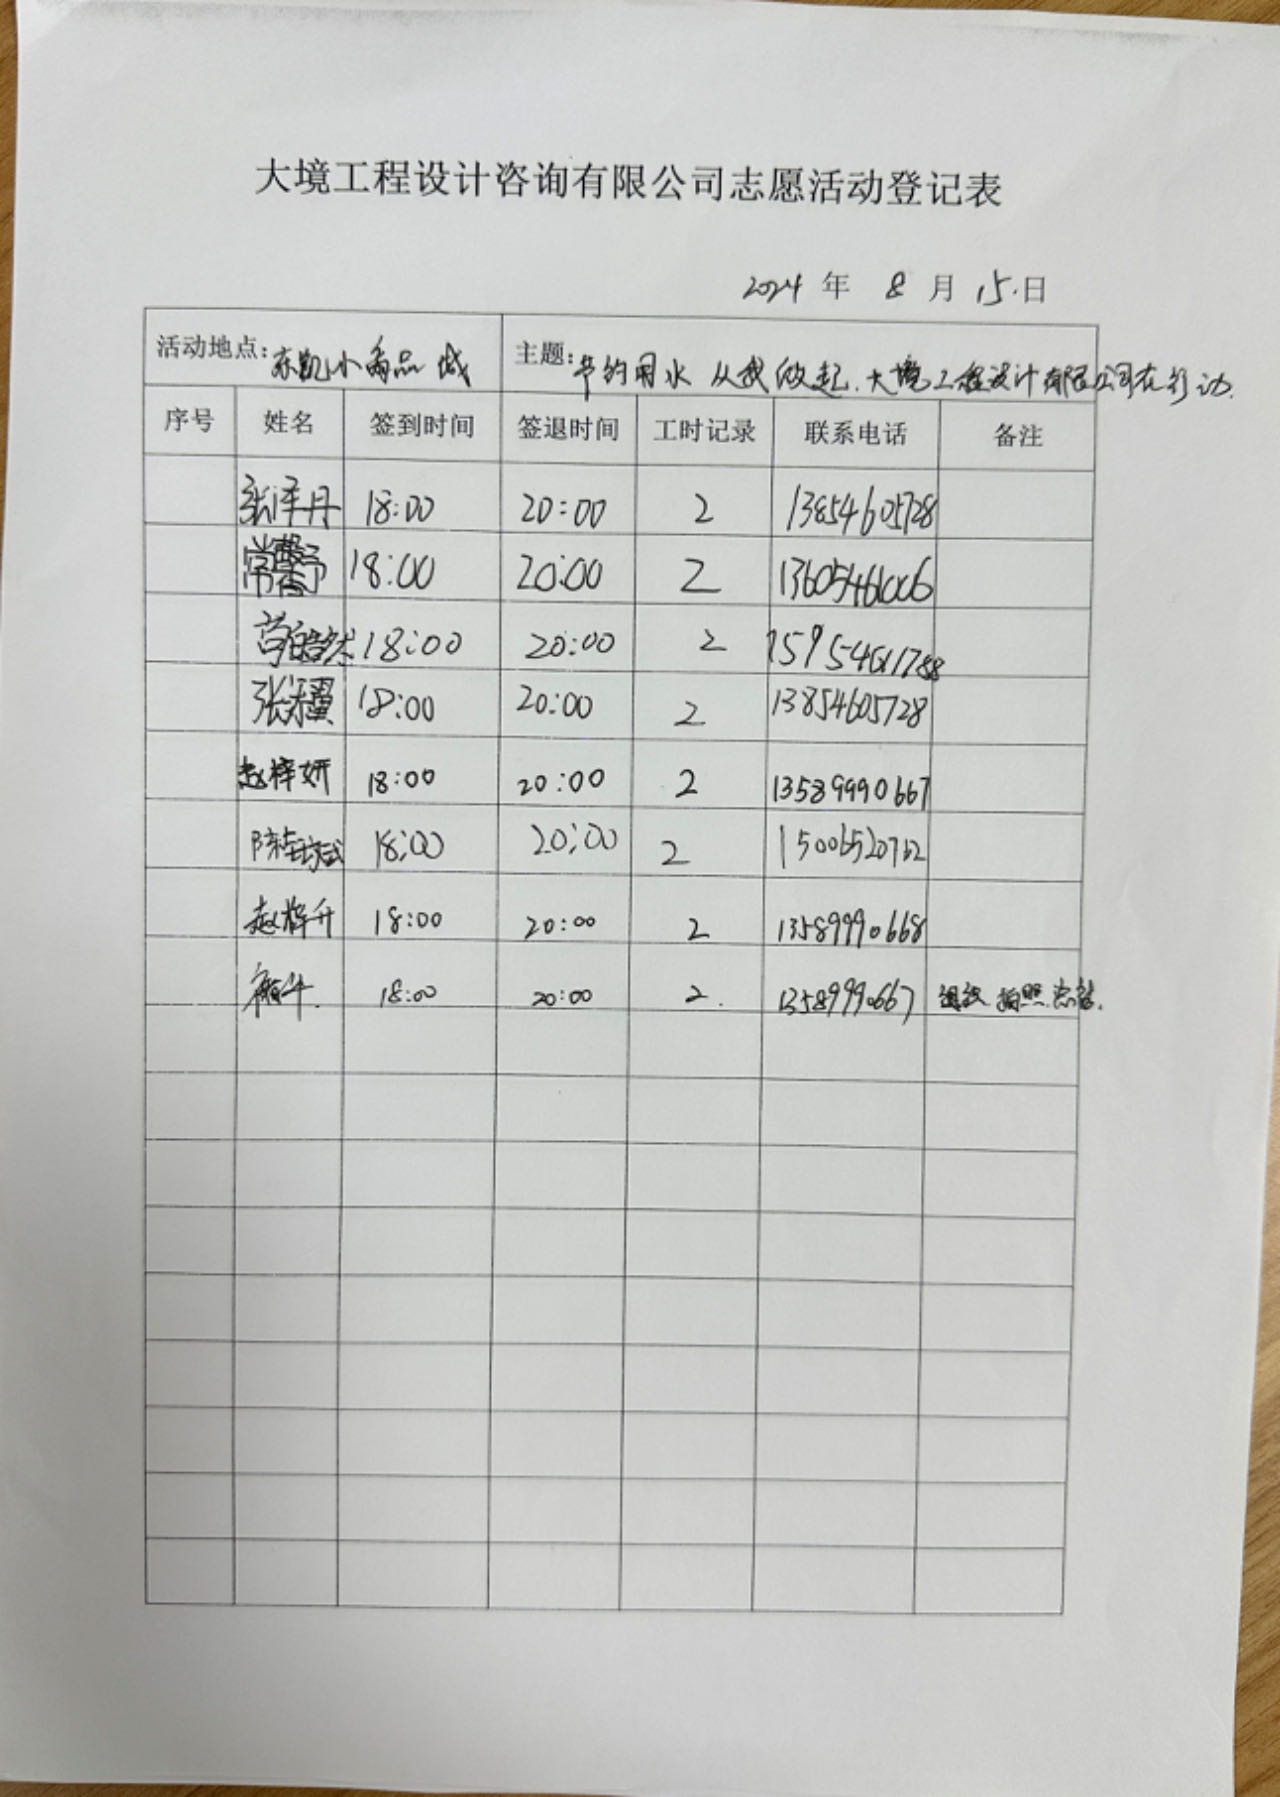 大境工程设计咨询有限公司志愿活动登记表
2024 年 8 月 15.日
活动地点:东凯小商品城 主题:节约用水 从我做起.大境工程设计有限公司在行动.
序号 姓名 签到时间 签退时间 工时记录 联系电话 备注
张泽丹 18:00 20:00 2 13854605728
常馨予 18:00 20:00 2 13605461006
18:00 20:00 2 15954611788
张 翼 18:00 20:00 2 13854605728
赵梓妍 18:00 20:00 2 13589990667
陈 18:00 20:00 2 15006520762
赵梓升 18:00 20:00 2 13589990668
18:00 20:00 2. 13589990667 组织.拍照.总结.